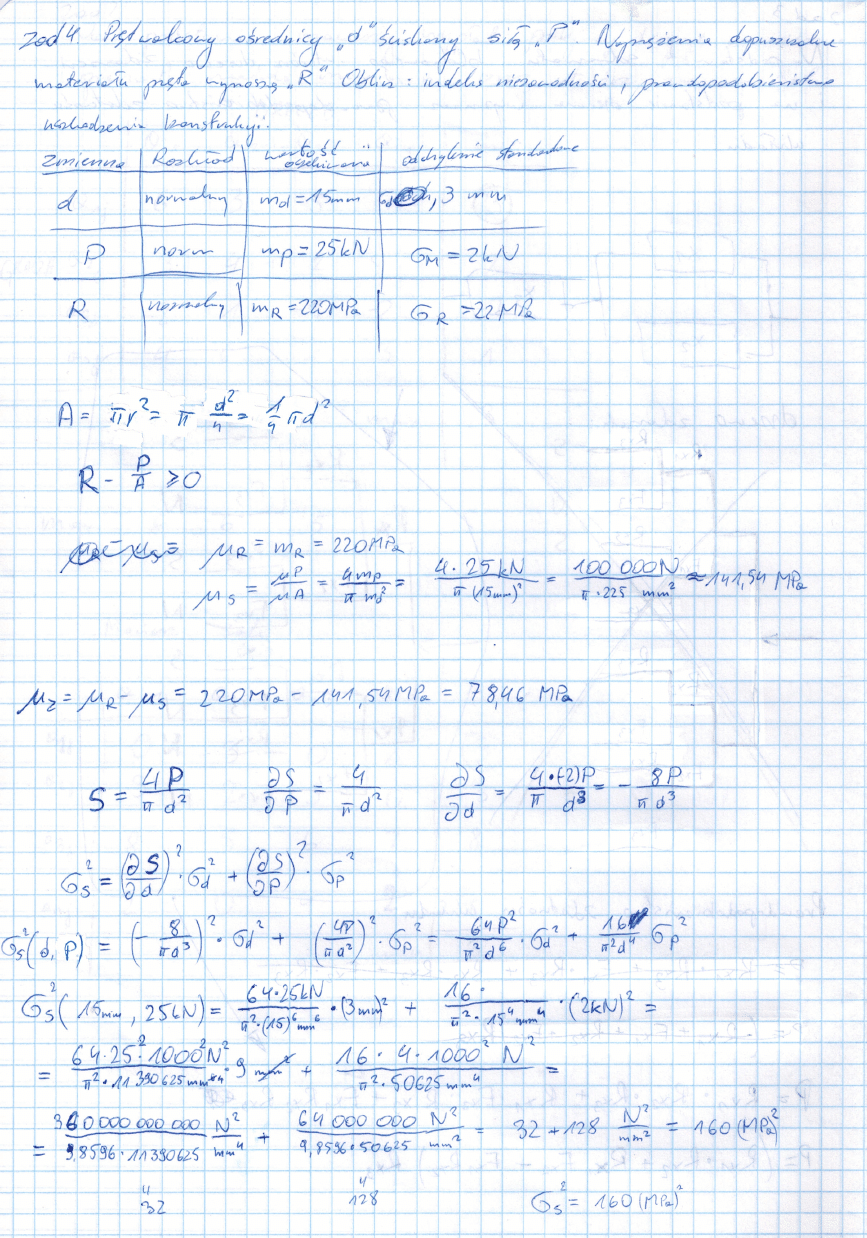 zad 4 Pręt walcowy o średnicy „d" ściskany siłą „P". Naprężenia dopuszczalne
materiału pręta wynoszą „R" Oblicz: indeks niezawodności, prawdopodobieństwo
uszkodzenia konstrukcji.
zmienna | Rozkład | wartość oczekiwana | odchylenie standardowe
d | normalny | m_d = 15mm | , 3 mm
P | norm | m_P = 25kN | σ_M = 2kN
R | normalny | m_R = 220MPa | σ_R = 22MPa
A = πr² = π d²/4 = 1/4 πd²
R - P/A ≥ 0
μ_R = m_R = 220MPa
μ_S = μP/μA = 4m_P/(π m_d²) = 4·25kN/(π(15mm)²) = 100 000N/(π·225 mm²) ≈ 141,54 MPa
μ_z = μ_R - μ_S = 220MPa - 141,54MPa = 78,46 MPa
S = 4P/(π d²) ∂S/∂P = 4/(π d²) ∂S/∂d = 4·(-2)P/(π d³) = - 8P/(π d³)
σ_S² = (∂S/∂d)²·σ_d² + (∂S/∂P)²·σ_P²
σ_S²(d, P) = (- 8/(πd³))²·σ_d² + (4P/(πd²))²·σ_P² = 64P²/(π²d⁶)·σ_d² + 16/(π²d⁴) σ_P²
σ_S²(15mm, 25kN) = 64·25kN/(π²·(15)⁶mm⁶)·(3mm)² + 16·/(π²·15⁴mm⁴)·(2kN)² =
= 64·25²·1000²N²/(π²·11390625mm⁴)·9 mm² + 16·4·1000² N²/(π²·50625mm⁴) =
= 360 000 000 000/(9,8596·11390625) N²/mm⁴ + 64 000 000 N²/(9,8596·50625 mm²) = 32 + 128 N²/mm² = 160 (MPa)²
" "
32 128 σ_S² = 160 (MPa)²